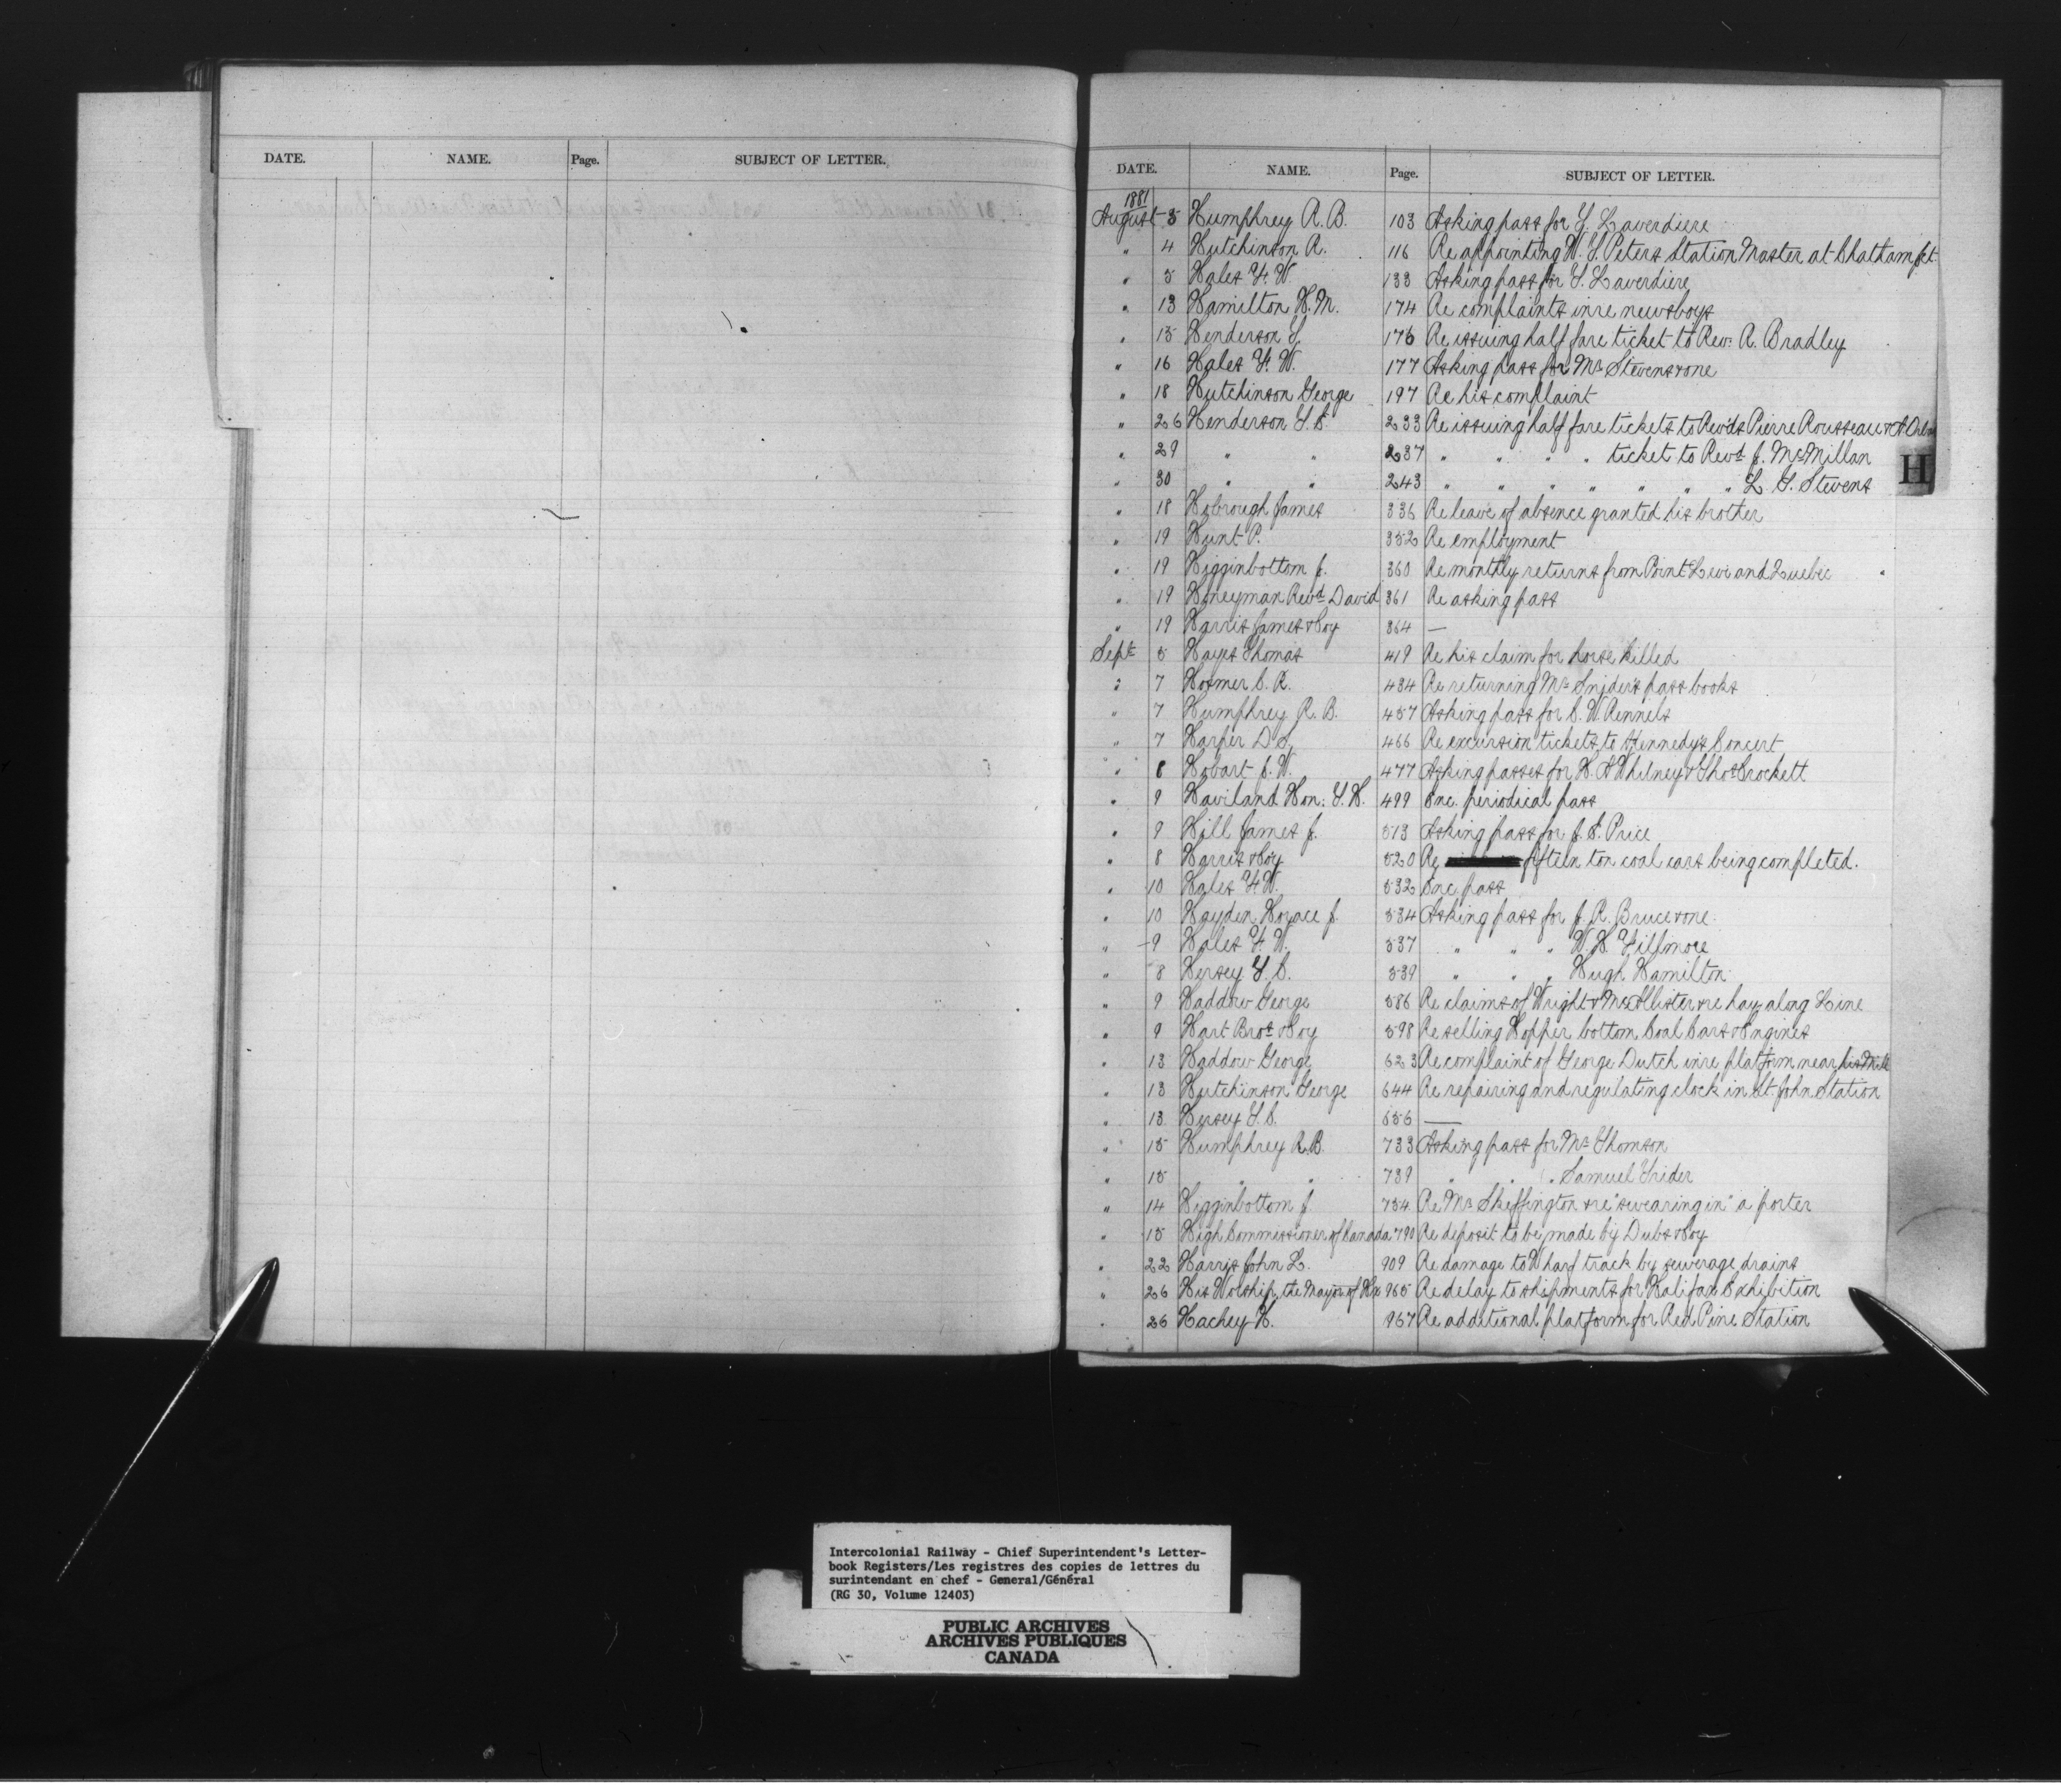 DATE. NAME. Page. SUBJECT OF LETTER.
DATE. NAME. Page. SUBJECT OF LETTER.
1881
August 3 Humphrey R. B. 103 Asking pass for Y. Laverdiere
" 4 Hutchinson R. 116 Re appointing W. Y. Peters Station Master at Chatham Jct
" 5 Hales F. W. 133 Asking pass for Y. Laverdiere
" 13 Hamilton H. M. 174 Re complaints inre newsboys
" 15 Henderson Y. 176 Re issuing half fare ticket to Rev. A. Bradley
" 16 Hales F. W. 177 Asking pass for Mr Stevens & one
" 18 Hutchinson George 197 Re his complaint
" 26 Henderson Y. C. 233 Re issuing half fare tickets to Rev'ds Pierre Rousseau &
" 29 " " 237 " " " " ticket to Revd J. McMillan
" 30 " " 243 " " " " " " " L. Y. Stevens
" 18 Hobrough James 336 Re leave of absence granted his brother
" 19 Hunt P. 352 Re employment
" 19 Higginbottom J. 360 Re monthly returns from Point Levi and Quebec
" 19 Honeyman Revd David 361 Re asking pass
" 19 Harris James & Coy 364 —
Sept 5 Hayes Thomas 419 Re his claim for horse killed
" 7 Hosmer C. R. 434 Re returning Mr Snider's pass books
" 7 Humphrey R. B. 457 Asking pass for C. W. Rennels
" 7 Harper D. S. 466 Re excursion tickets to Kennedy's Concert
" 8 Hobart J. W. 477 Asking passes for H. A Whitney & Thos Crockett
" 9 Haviland Hon. T. H. 499 Enc. periodical pass
" 9 Hill James J. 513 Asking pass for J. E. Price
" 8 Harris & Coy 520 Re fifteen ton coal cars being completed.
" 10 Hales F. W. 532 Enc pass
" 10 Hayden Horace J. 534 Asking pass for J. R. Bruce & one
" 9 Hales F. W. 537 " " " W. H. Fillmore
" 8 Hersey Y. C. 539 " " " Hugh Hamilton
" 9 Haddow George 586 Re claims of Wright & McAllister & re hay along Line
" 9 Hart Bros & Coy 598 Re selling Hopper bottom Coal Cars & Engines
" 13 Haddow George 623 Re complaint of George Dutch inre platform near his Mill
" 13 Hutchinson George 644 Re repairing and regulating clock in St. John Station
" 13 Hersey Y. C. 656 —
" 15 Humphrey R. B. 733 Asking pass for Mr Thomson
" 15 " " 739 " " " Samuel Trider
" 14 Higginbottom J. 754 Re Mr Skeffington & re "swearing in" a porter
" 15 High Commissioner of Canada 790 Re deposit to be made by Dubs & Coy
" 22 Harris John L. 909 Re damage to Wharf track by sewerage drains
" 26 His Worship the Mayor of Hx 965 Re delay to shipments for Halifax Exhibition
" 26 Hachey H. 967 Re additional platform for Red Pine Station
H
Intercolonial Railway - Chief Superintendent's Letter-
book Registers/Les registres des copies de lettres du
surintendant en chef - General/Général
(RG 30, Volume 12403)
PUBLIC ARCHIVES
ARCHIVES PUBLIQUES
CANADA